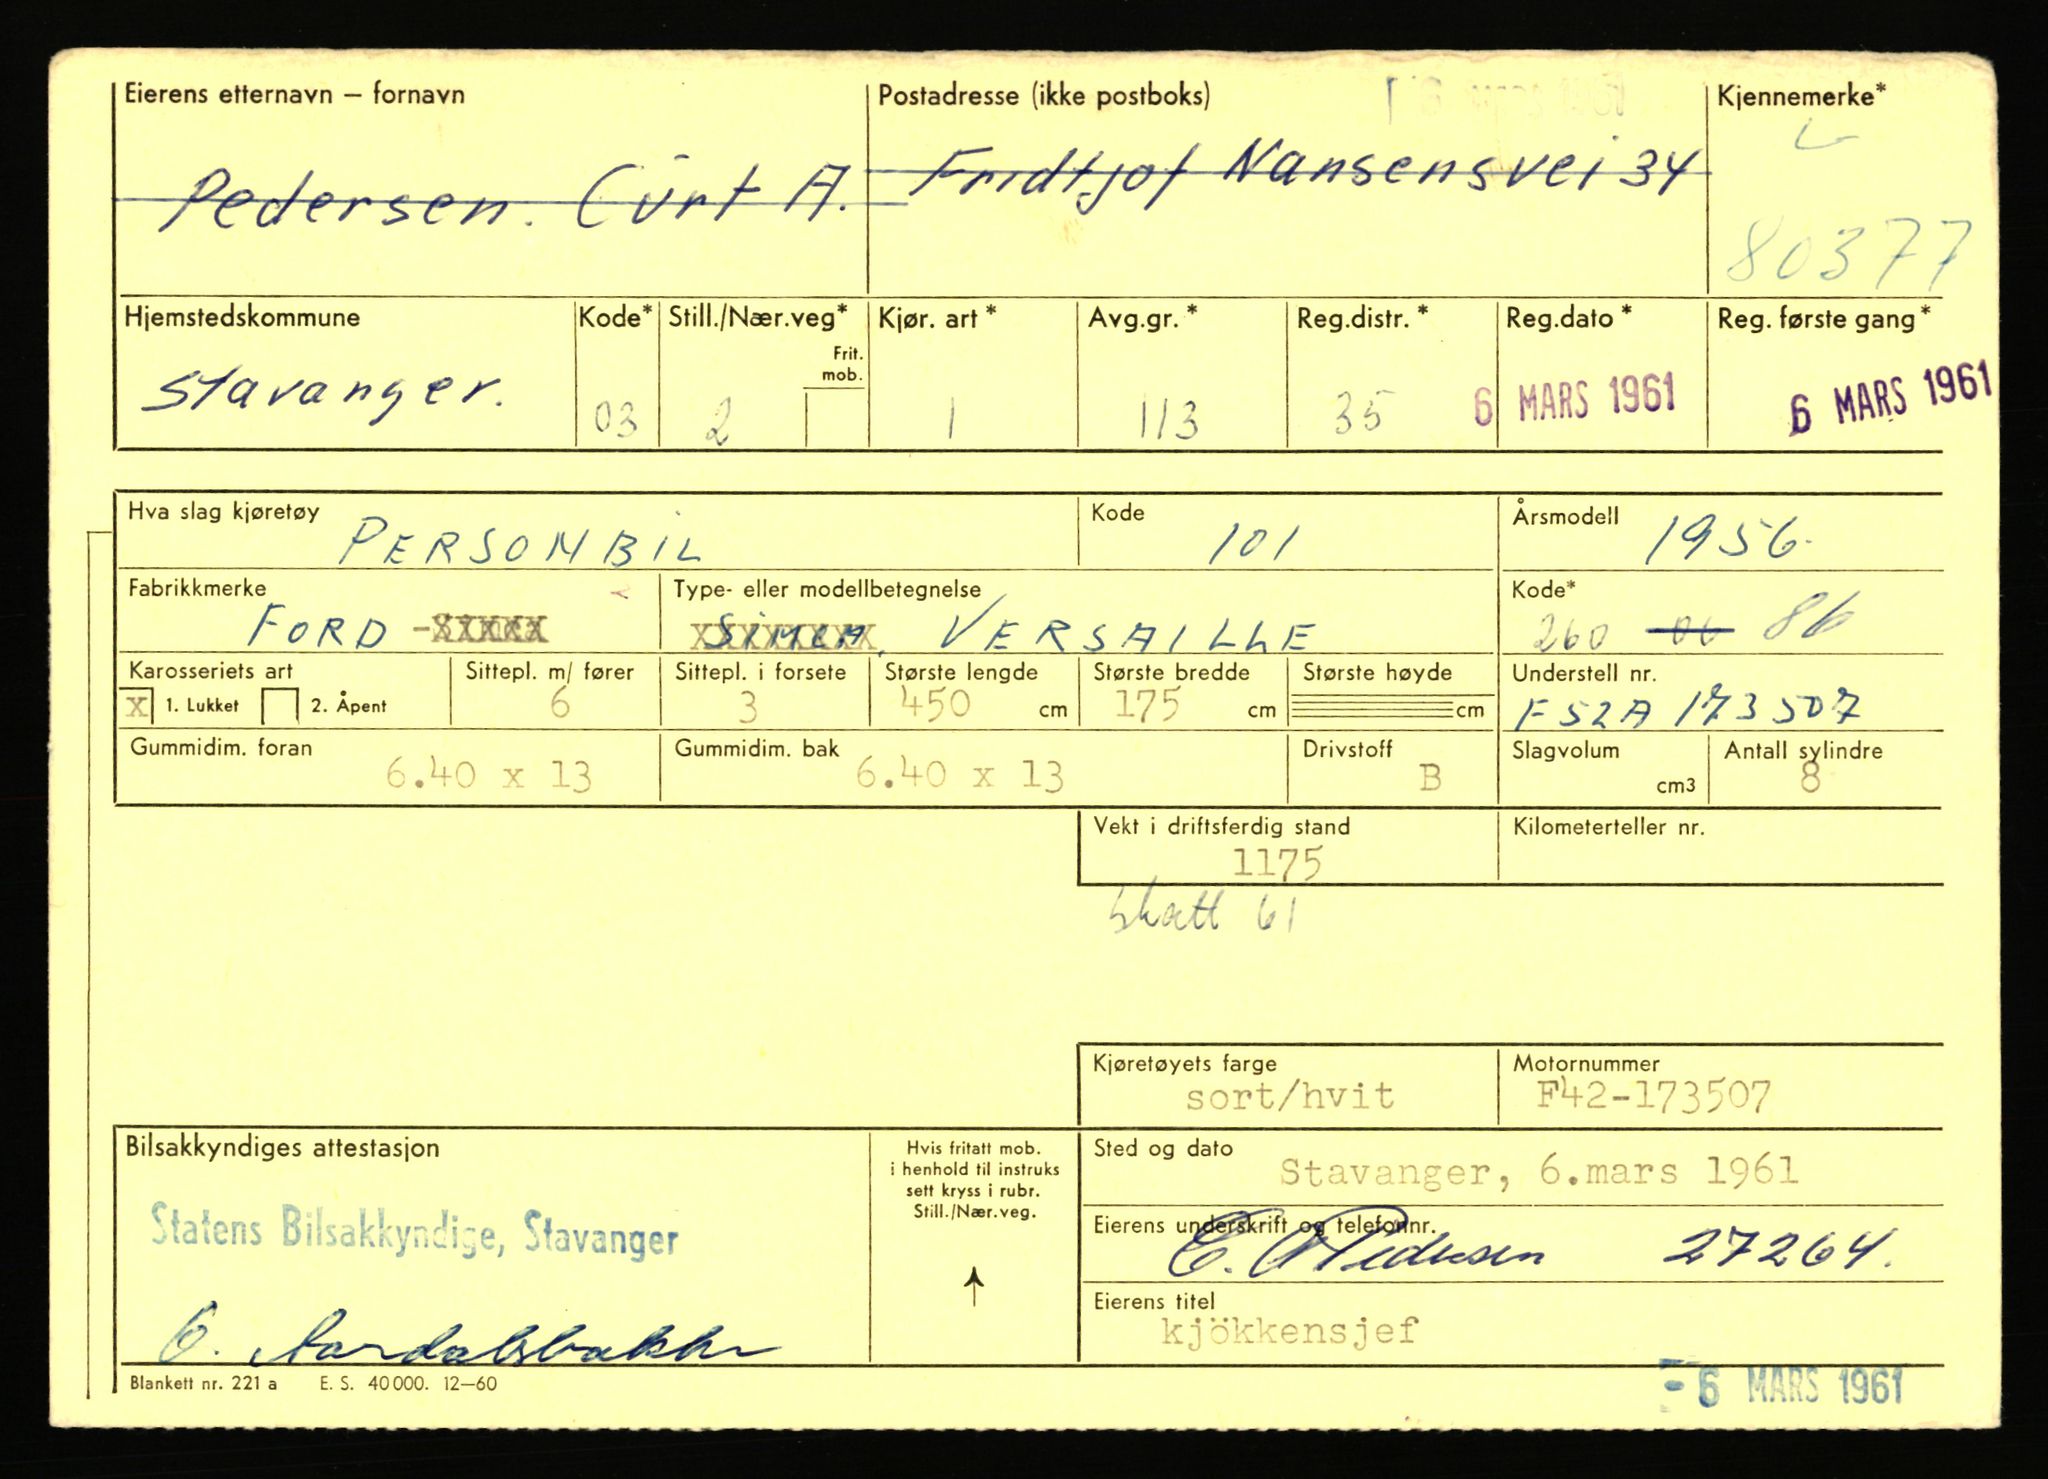 Eierens etternavn – fornavn
Postadresse (ikke postboks)
Kjennemerke*
Pedersen. Curt A.
Fridtjof Nansensvei 34
L
80377
Hjemstedskommune
Kode*
Still./Nær.veg*
Frit.
mob.
Kjør. art *
Avg.gr. *
Reg.distr. *
Reg.dato *
Reg. første gang *
Stavanger.
03
2
1
113
35
6 MARS 1961
6 MARS 1961
Hva slag kjøretøy
PERSONBIL
Kode
101
Årsmodell
1956.
Fabrikkmerke
FORD - Simca
Type- eller modellbetegnelse
SIMCA, VERSAILLE
Kode*
260 06 86
Karosseriets art
X 1. Lukket 2. Åpent
Sittepl. m/ fører
6
Sittepl. i forsete
3
Største lengde
450 cm
Største bredde
175 cm
Største høyde
cm
Understell nr.
F52A 173507
Gummidim. foran
6.40 x 13
Gummidim. bak
6.40 x 13
Drivstoff
B
Slagvolum
cm3
Antall sylindre
8
Vekt i driftsferdig stand
1175
Kilometerteller nr.
skatt 61
Kjøretøyets farge
sort/hvit
Motornummer
F42-173507
Bilsakkyndiges attestasjon
Statens Bilsakkyndige, Stavanger
O. Aardalsbakke
Hvis fritatt mob.
i henhold til instruks
sett kryss i rubr.
Still./Nær.veg.
Sted og dato
Stavanger, 6.mars 1961
Eierens underskrift og telefonnr.
C. A Pedersen 27264.
Eierens titel
kjökkensjef
Blankett nr. 221 a E. S. 40 000. 12–60
- 6 MARS 1961